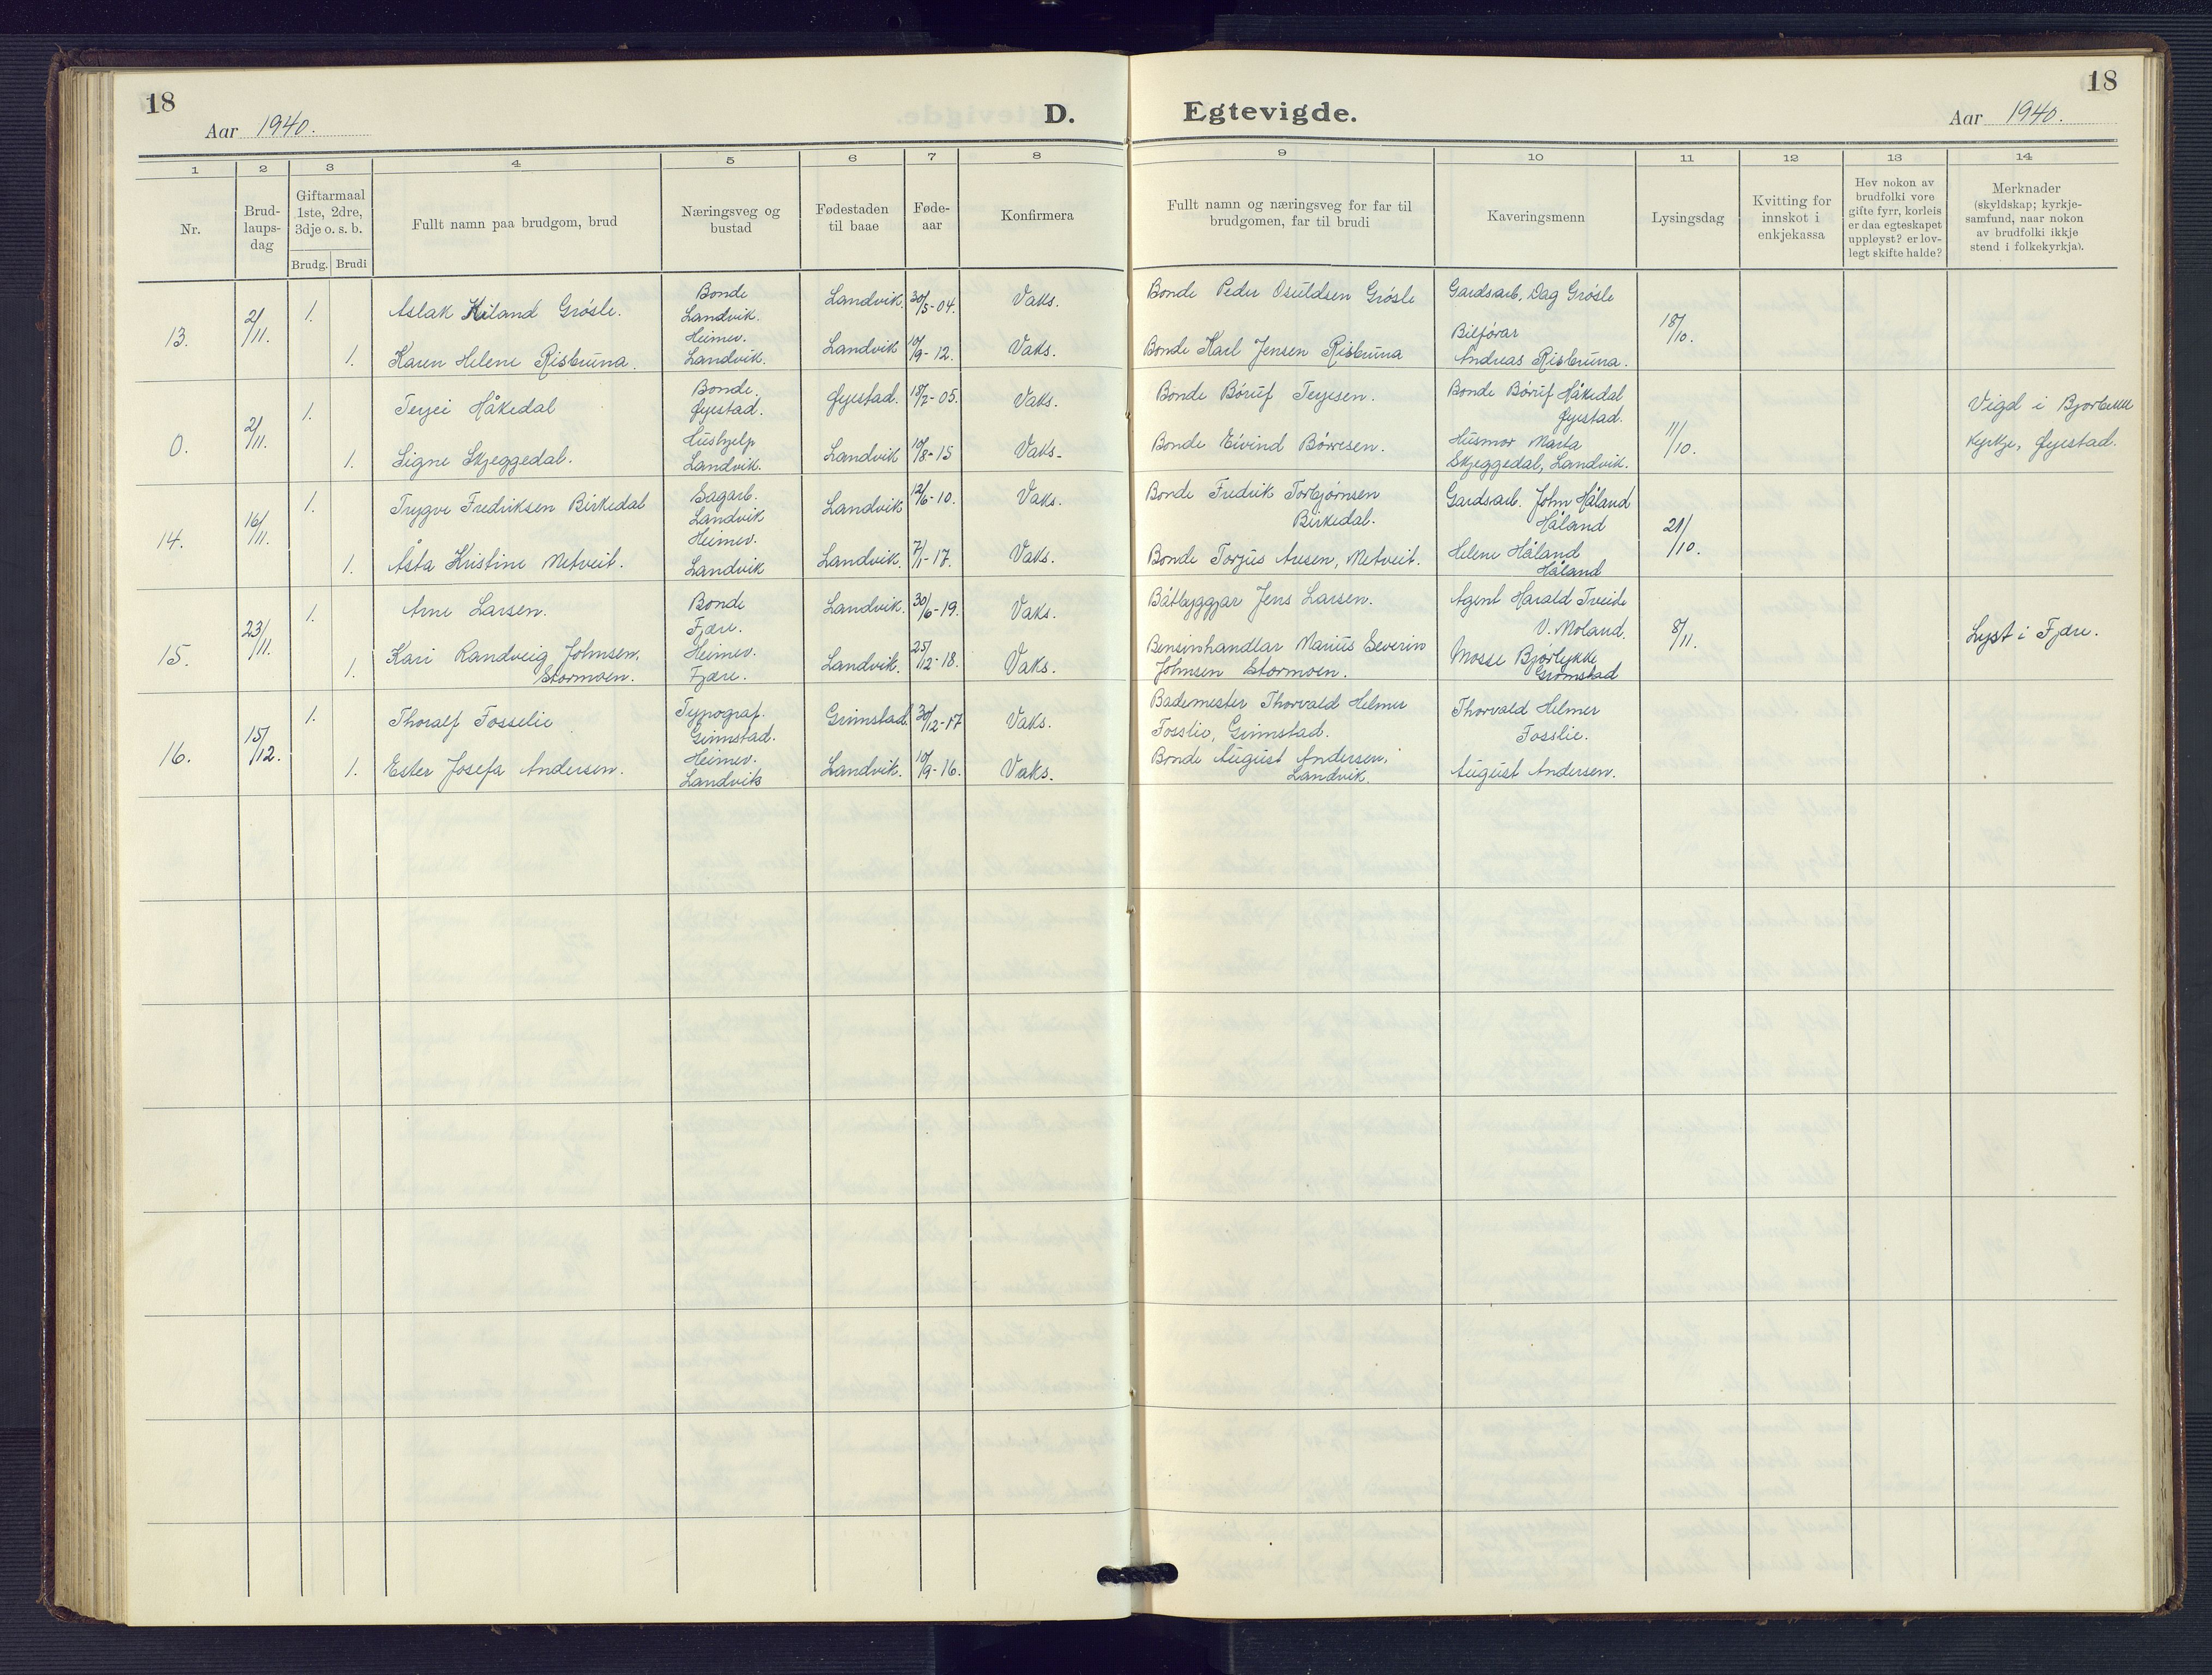 18
Aar 1940.
D.
Egtevigde.
Aar 1940.
18
1 2 3 4 5 6 7 8 9 10 11 12 13 14
Nr.
Brud-
laups-
dag
Giftarmaal
1ste, 2dre,
3dje o. s. b.
Brudg. Brudi
Fullt namn paa brudgom, brud
Næringsveg og
bustad
Fødestaden
til baae
Føde-
aar
Konfirmera
Fullt namn og næringsveg for far til
brudgomen, far til brudi
Kaveringsmenn
Lysingsdag
Kvitting for
innskot i
enkjekassa
Hev nokon av
brudfolki vore
gifte fyrr, korleis
er daa egteskapet
uppløyst? er lov-
legt skifte halde?
Merknader
(skyldskap; kyrkje-
samfund, naar nokon
av brudfolki ikkje
stend i folkekyrkja).
13. 2/11.
1. Aslak Kiland Grøsle. Bonde Landvik. Landvik 30/5-04. Vaks. Bonde Peder Osuldsen Grøsle Gardsarb. Dag Grøsle
18/10.
1. Karen Helene Risbruna. Heimev. Landvik. Landvik 10/9-12. Vaks. Bonde Karl Jensen Risbruna Bilførar Andreas Risbruna.
0. 2/11.
1. Terjei Håkedal Bonde. Øyestad. Øyestad. 18/2-05. Vaks. Bonde Børuf Terjesen. Bonde Børuf Håkedal Øyestad.
11/10.
Vigd i Bjorbekk
kyrkje, Øyestad.
1. Signe Skjeggedal. Hushjelp Landvik. Landvik 10/8-15 Vaks. Bonde Eivind Børresen. Husmor Marta Skjeggedal, Landvik.
14. 16/11.
1. Trygve Fredriksen Birkedal Sagarb. Landvik Landvik 12/6-10. Vaks. Bonde Fredrik Torbjørnsen Birkedal. Gardsarb. John Håland Håland
21/10.
1. Åsta Kristine Metveit. Heimev. Landvik Landvik. 7/1-17. Vaks. Bonde Torjus Aresen, Metveit. Helene Håland Håland
15. 23/11.
1. Arne Larsen. Bonde Fjære. Landvik. 30/6-19. Vaks. Båtbyggjar Jens Larsen. Agent Harald Tveide V. Moland.
8/11.
Lyst i Fjære.
1. Kari Randveig Johnsen, Stormoen. Heimev. Fjære. Landvik. 25/12-18. Vaks. Bensinhandlar Marius Severin Johnsen Stormoen. Mosse Bjørlykke Grimstad
16. 15/12.
1. Thoralf Fosselie Typograf. Grimstad. Grimstad 30/12-17 Vaks. Bademester Thorvald Helmer Fosslie, Grimstad. Thorvald Helmer Fosslie.
1. Ester Josefa Andersen. Heimev. Landvik Landvik. 10/9-16. Vaks. Bonde August Andersen, Landvik. August Andersen.